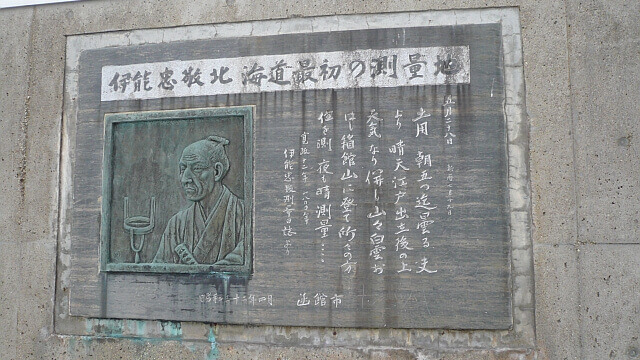 伊能忠敬北海道最初の測量地
五月二十八日
土用 朝五つ迄曇る 夫
より 晴天江戸出立後の上
天気なり 併し山々白雲お
ほし箱館山に登て所々の方
位を測 夜も晴測量ご……
寛政十二年
伊能忠敬測量日誌より
函館市